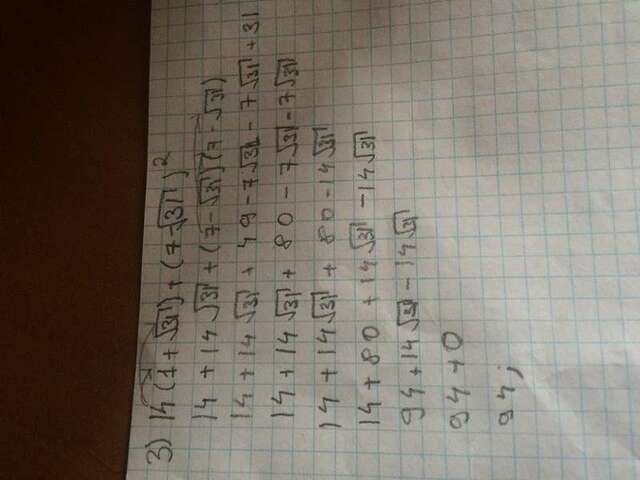 3) 14(1+√31)+(7-√31)²
14+14√31+(7-√31)(7-√31)
14+14√31+49-7√31-7√31+31
14+14√31+80-7√31-7√31
14+14√31+80-14√31
14+80+14√31-14√31
94+14√31-14√31
94+0
94;